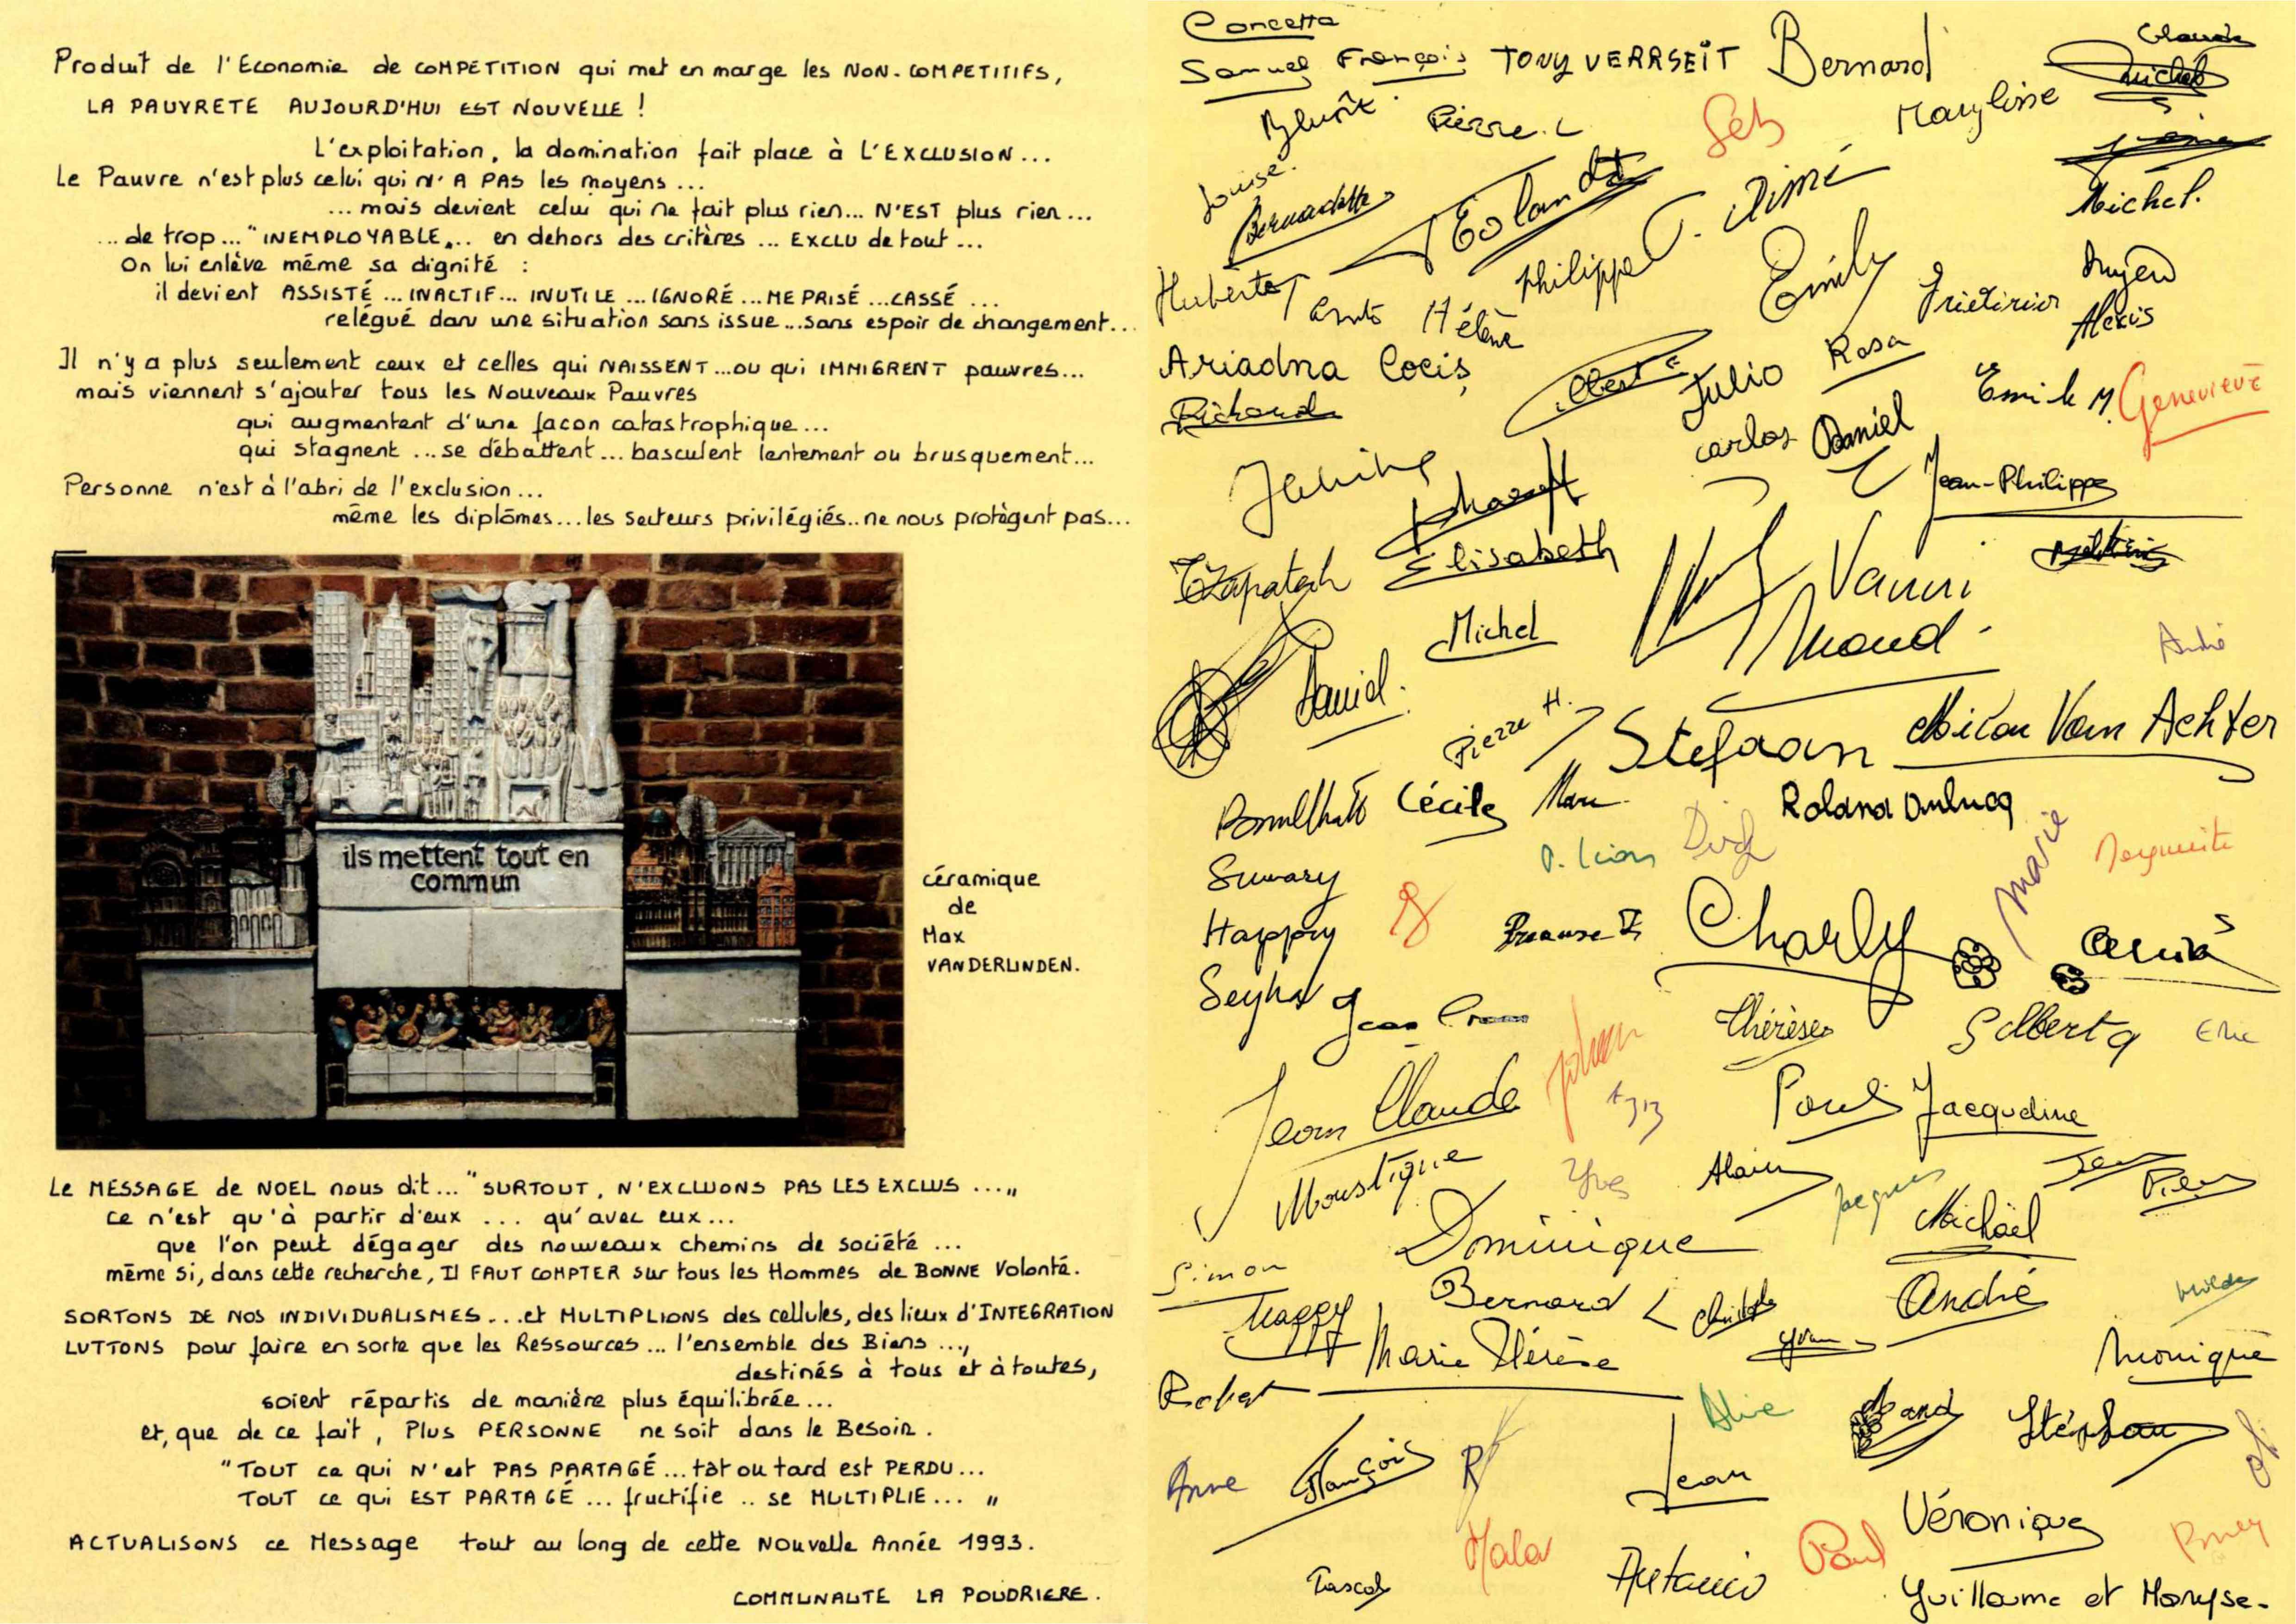 Produit de l'Economie de COMPETITION qui met en marge les NON-COMPETITIFS,
LA PAUVRETE AUJOURD'HUI EST NOUVELLE !
L'exploitation, la domination fait place à L'EXCLUSION...
Le Pauvre n'est plus celui qui N'A PAS les moyens ...
... mais devient celui qui ne fait plus rien... N'EST plus rien ...
... de trop... "INEMPLOYABLE„.. en dehors des critères ... EXCLU de tout ...
On lui enlève même sa dignité :
il devient ASSISTÉ ... INACTIF... INUTILE ... IGNORÉ ... MEPRISÉ ... CASSÉ ...
relégué dans une situation sans issue ... sans espoir de changement...
Il n'y a plus seulement ceux et celles qui NAISSENT ... ou qui IMMIGRENT pauvres...
mais viennent s'ajouter tous les Nouveaux Pauvres
qui augmentent d'une facon catastrophique ...
qui stagnent ... se débattent ... basculent lentement ou brusquement...
Personne n'est à l'abri de l'exclusion ...
même les diplômes ... les secteurs privilégiés .. ne nous protègent pas...
ils mettent tout en
commun
céramique
de
Max
VANDERLINDEN.
Le MESSAGE de NOEL nous dit ... "SURTOUT, N'EXCLUONS PAS LES EXCLUS ...„
ce n'est qu'à partir d'eux ... qu'avec eux ...
que l'on peut dégager des nouveaux chemins de société ...
même si, dans cette recherche, Il FAUT COMPTER sur tous les Hommes de BONNE Volonté.
SORTONS DE NOS INDIVIDUALISMES ... et MULTIPLIONS des cellules, des lieux d'INTEGRATION
LUTTONS pour faire en sorte que les Ressources ... l'ensemble des Biens ...,
destinés à tous et à toutes,
soient répartis de manière plus équilibrée ...
et, que de ce fait, Plus PERSONNE ne soit dans le Besoin.
"TOUT ce qui N'est PAS PARTAGÉ ... tôt ou tard est PERDU ...
TOUT ce qui EST PARTAGÉ ... fructifie .. se MULTIPLIE ... „
ACTUALISONS ce Message tout au long de cette Nouvelle Année 1993.
COMMUNAUTE LA POUDRIERE.
Concetta
Samuel François TONY VERRSEIT Bernard Claude
Michel
Pierre. L Seb Marylise
Louise.
Bernadette Yolande Aimé Michel.
Huberte Hélène Philippe Emily
Alexis
Ariadna Cocis Albert Julio Rosa
Richard Emile M Geneviève
Janine carlos Daniel Jean-Philippe
Elisabeth Vanni
Michel
Daniel. André
Pierre H. Stefaan Van Achter
Cécile Marc Roland
P. Lion Dirk Marie Marguerite
Suwary
Happy Charly
Seyha
Thérèse Gilberta Eric
Jean Claude Johan Paul Jacqueline
Moustique Yves Alain Jacques
Dominique Michaël
Simon
Maggy Bernard L André
Marie Thérèse Yvan Monique
Robert Alice
Anne François Jean Stéphan
Véronique
Pascal Mala Antonio Paul
Guillaume et Maryse.